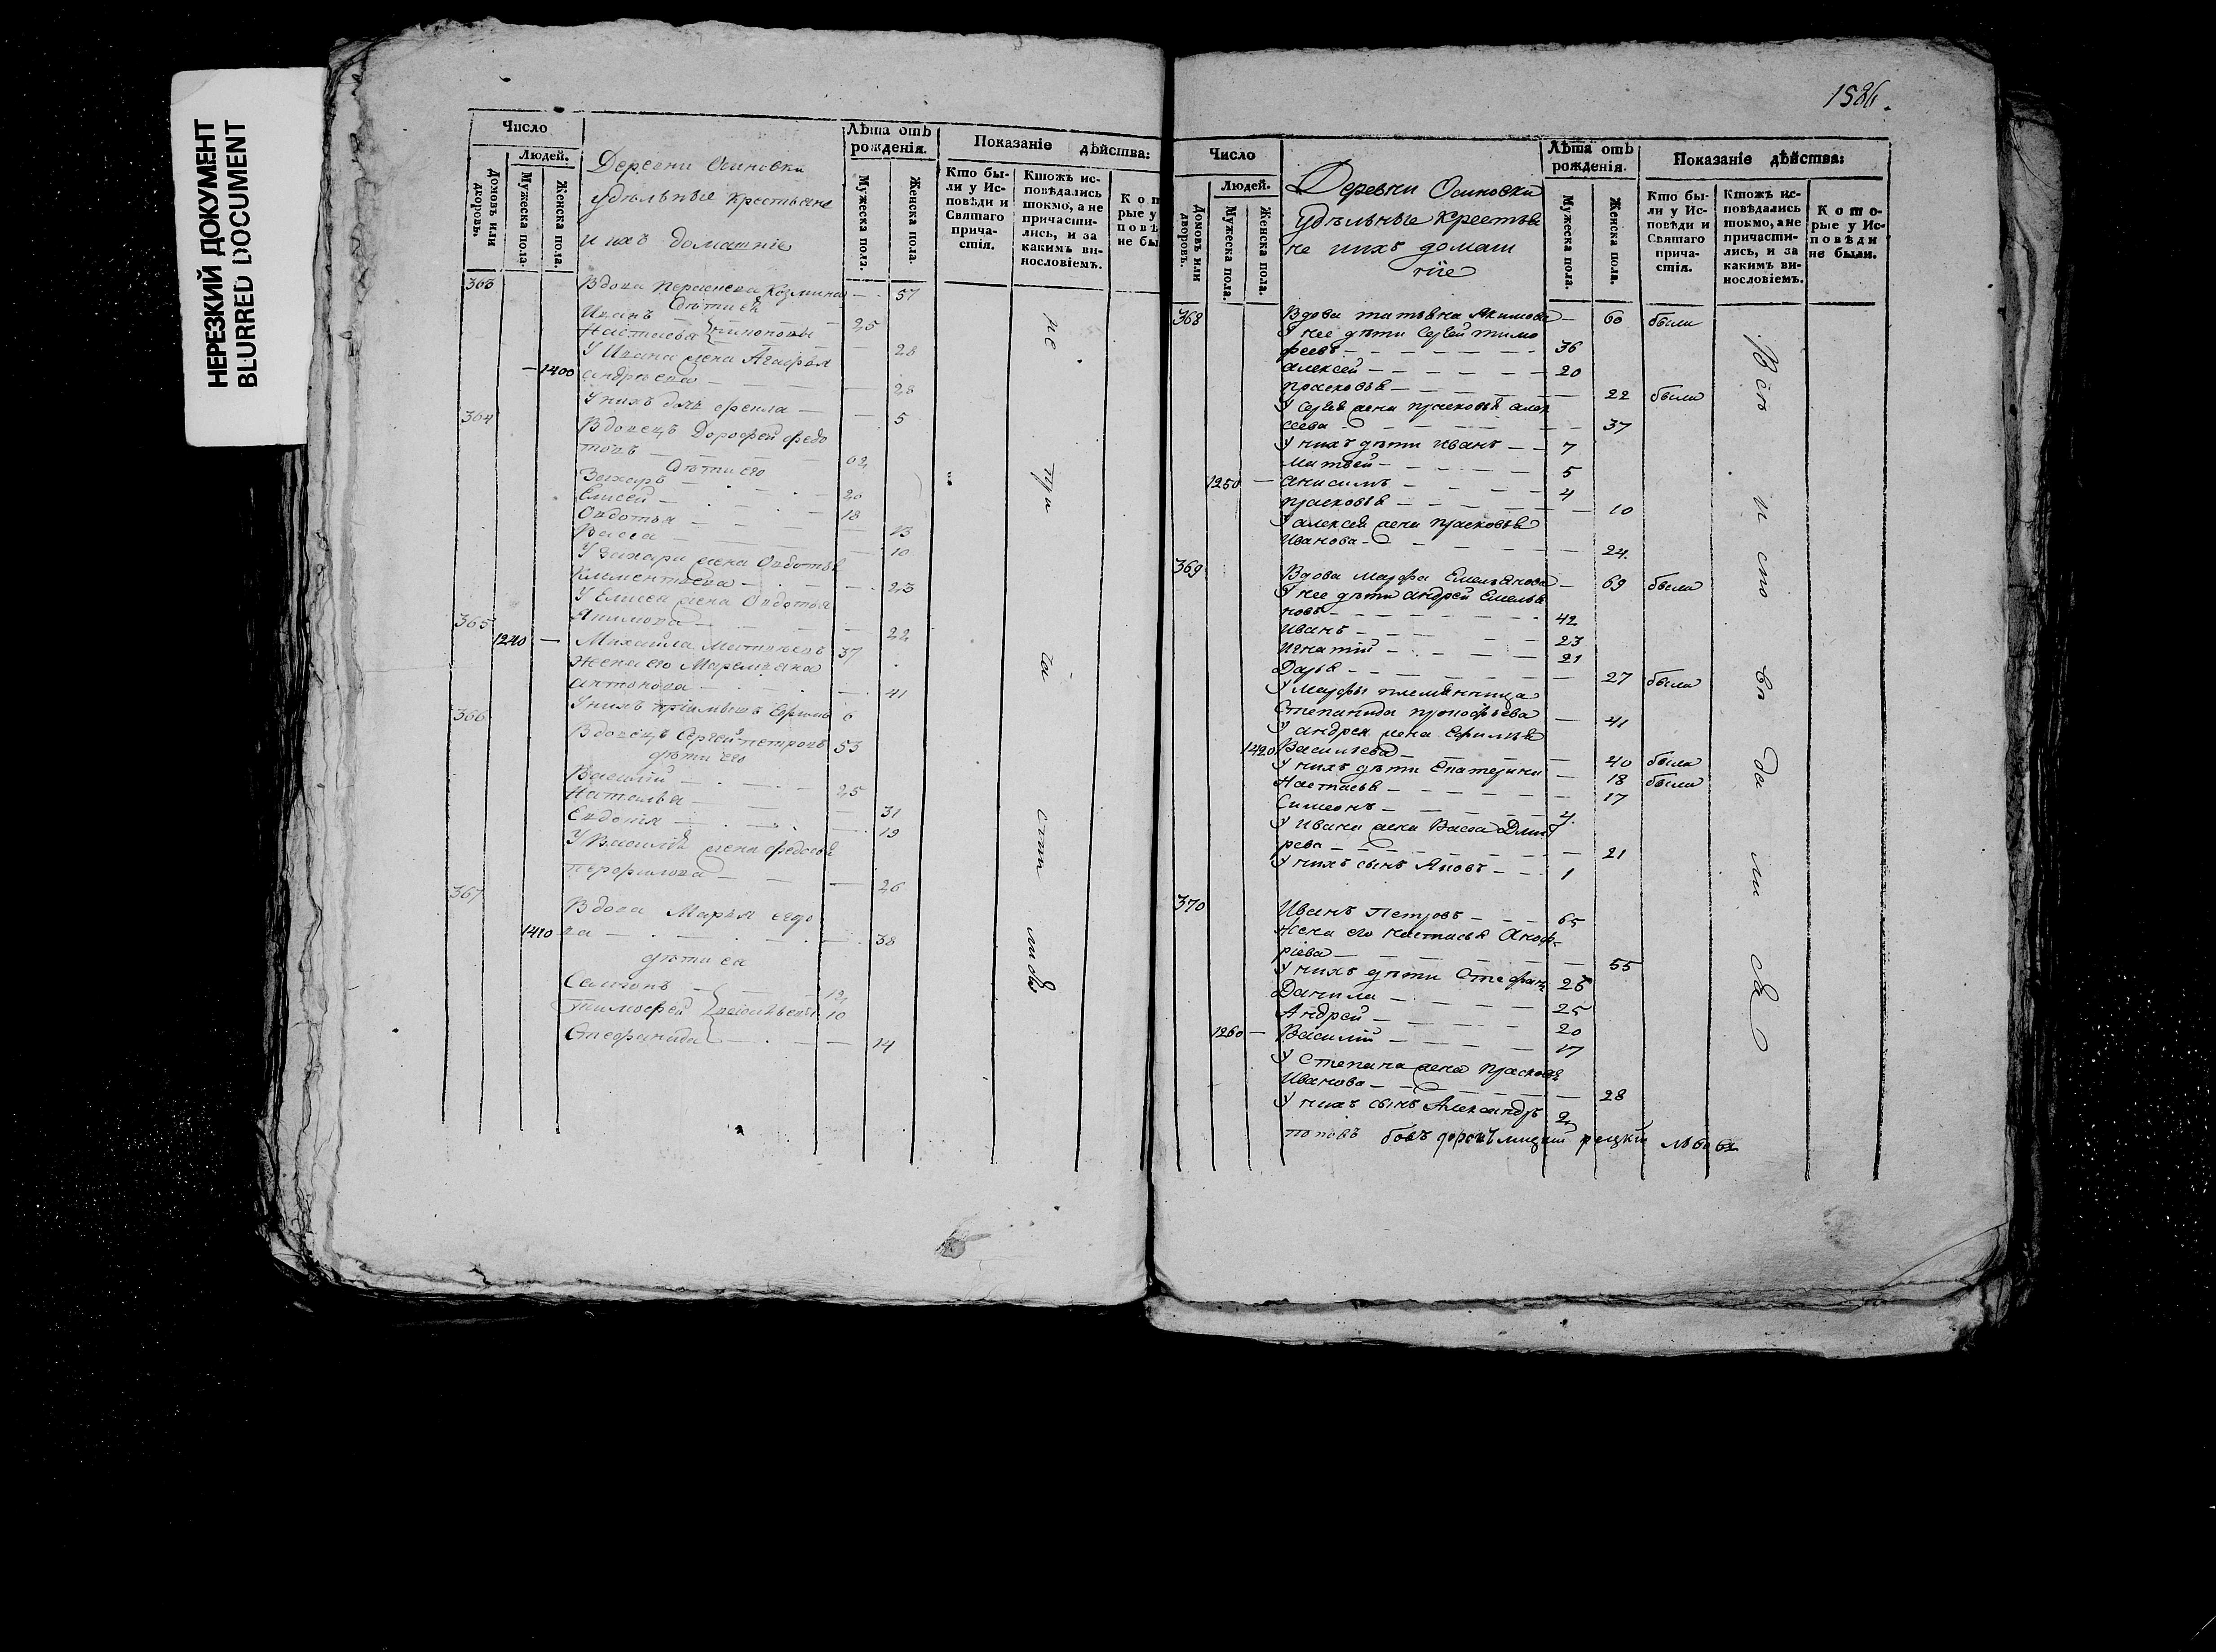 НЕРЕЗКИЙ ДОКУМЕНТ
BLURRED DOCUMENT
Число
Людей.
Домовъ или дворовъ.
Мужеска пола.
Женска пола.
Деревни Осиновки
удѣльные крестьяне
и ихъ домашніе
Лѣта отъ рожденія.
Мужеска пола.
Женска пола.
Показаніе дѣйства:
Кто бы-
ли у Ис-
повѣди и
Святаго
прича-
стія.
Ктожъ ис-
повѣдались
токмо, а не
причасти-
лись, и за
какимъ ви-
нословіемъ.
Кот
рые у
повѣ
не бы
363 Вдова Козмина — 57
дѣти ея
Иванъ — 25
Настасья — 28
У Ивана жена Агафья
1400 андреева — 28
У нихъ дочь — 5
364 Вдовецъ Дорофей федо
товъ — 62
дѣти его
Захаръ — 20
Елисей — 18
Овдотья — 13
Васса — 10
У Захара жена Овдотья
Климентьева — 23
У Елисея жена Овдотья
Якимова — 22
365 1240 — Михайла 37
Жена его
антонова — 41
У нихъ Ефимъ 6
366 Вдовецъ Сергей петровъ 53
дѣти его
Василій — 25
Наталья — 31
Евдотія — 19
У Василья жена федосья
— 26
367 Вдова Марья
1410 ва — 38
дѣти ея
Самсонъ — 12
Тимофей 10
Стефанида — 14
не при ча сти лись
1586.
Число
Людей.
Домовъ или дворовъ.
Мужеска пола.
Женска пола.
Деревни Осиновки
Удѣльные крестья
не ихъ домаш
ніе
Лѣта отъ рожденія.
Мужеска пола.
Женска пола.
Показаніе дѣйства:
Кто бы-
ли у Ис-
повѣди и
Святаго
прича-
стія.
Ктожъ ис-
повѣдались
токмо, а не
причасти-
лись, и за
какимъ ви-
нословіемъ.
Кото-
рые у Ис-
повѣди
не были.
368 Вдова татьяна Акимова — 60 была
У нее дѣти Сергей тимо
феевъ — 36
алексей — 20
прасковья — 22 была
У Сергея жена прасковья алек
сеева — 37
У нихъ дѣти Иванъ — 7
Матвей — 5
1250 — анисимъ — 4
прасковья — 10
У алексея жена прасковья
Иванова — 24
369 Вдова Марфа Емельянова — 69 была
У нее дѣти андрей Емелья
новъ — 42
Иванъ — 23
Игнатій — 21
Дарья — 27 была
У Марфы племянница
Степанида прокофьева — 41
У андрея жена Ефимья
1420 Васильева — 40 была
У нихъ дѣти Екатерина — 18 была
Настасья — 17
Симеонъ — 4
У Ивана жена Васса Дмит
рева — 21
У нихъ сынъ Яковъ — 1
370 Иванъ Петровъ — 65
Жена его настасья Аноф-
ріева — 55
У нихъ дѣти Стефанъ 26
Данила — 25
Андрей — 20
1260 — Василій — 17
У Степана жена прасковья
Иванова — 28
У нихъ сынъ Александръ 2